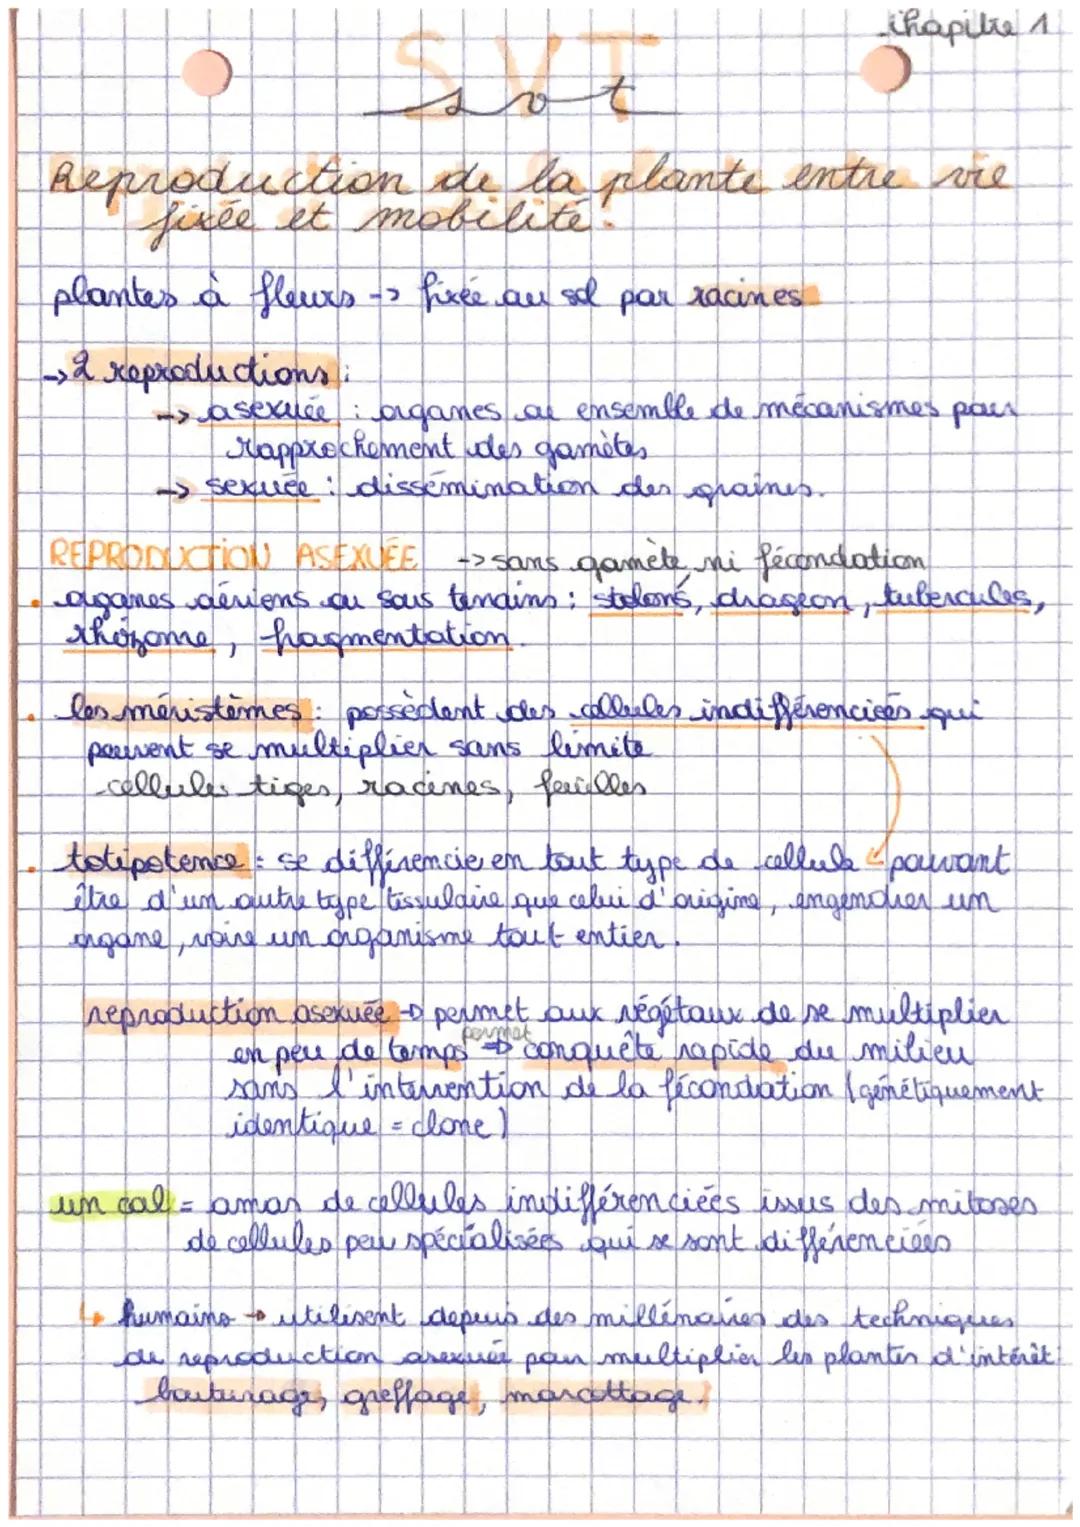 chapitre 1
SVT
svt
Reproduction de la plante entre vie
fixée et mobilité.
plantes à fleurs -> fixée au sol par racines
-> 2 reproductions :
-> asexuée : organes ou ensemble de mécanismes pour
rapprochement des gamètes
-> sexuée : dissémination des graines.
REPRODUCTION ASEXUÉE -> sans gamète ni fécondation
• organes aériens ou sous terrains : stolons, drageon, tubercules,
rhizome, fragmentation.
• les méristèmes : possèdent des cellules indifférenciées qui
peuvent se multiplier sans limite
cellules tiges, racines, feuilles
• totipotence : se différencie en tout type de cellule pouvant
être d'un autre type tissulaire que celui d'origine, engendrer un
organe, voire un organisme tout entier.
reproduction asexuée -> permet aux végétaux de se multiplier
permet
en peu de temps => conquête rapide du milieu
sans l'intervention de la fécondation (génétiquement
identique = clone)
un cal = amas de cellules indifférenciées issus des mitoses
de cellules peu spécialisées qui se sont différenciées
↳ humains -> utilisent depuis des millénaires des techniques
de reproduction asexuée pour multiplier les plantes d'intérêt :
bouturage, greffage, marcottage.